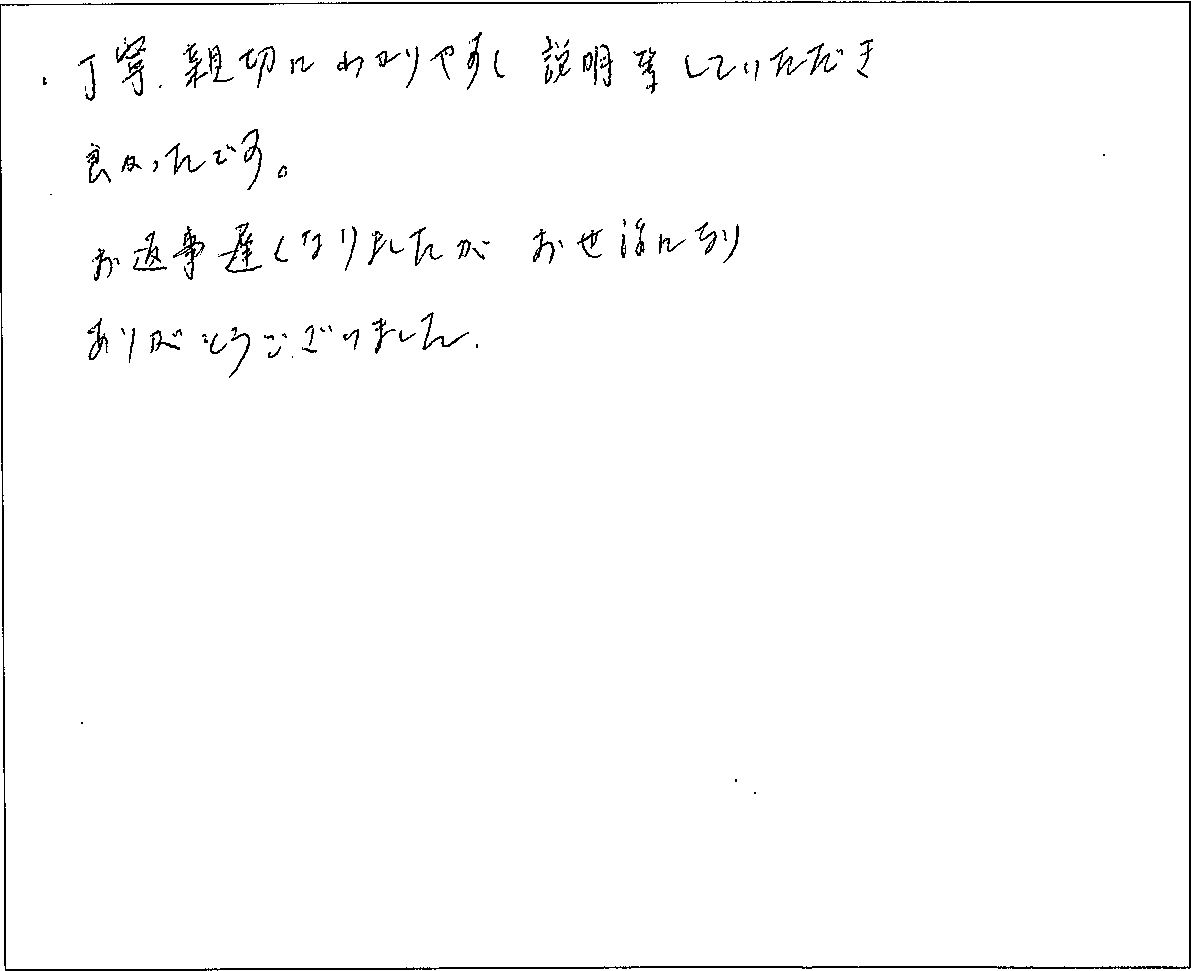 ・丁寧、親切にわかりやすく説明等していただき
良かったです。
お返事遅くなりましたが お世話になり
ありがとうございました。